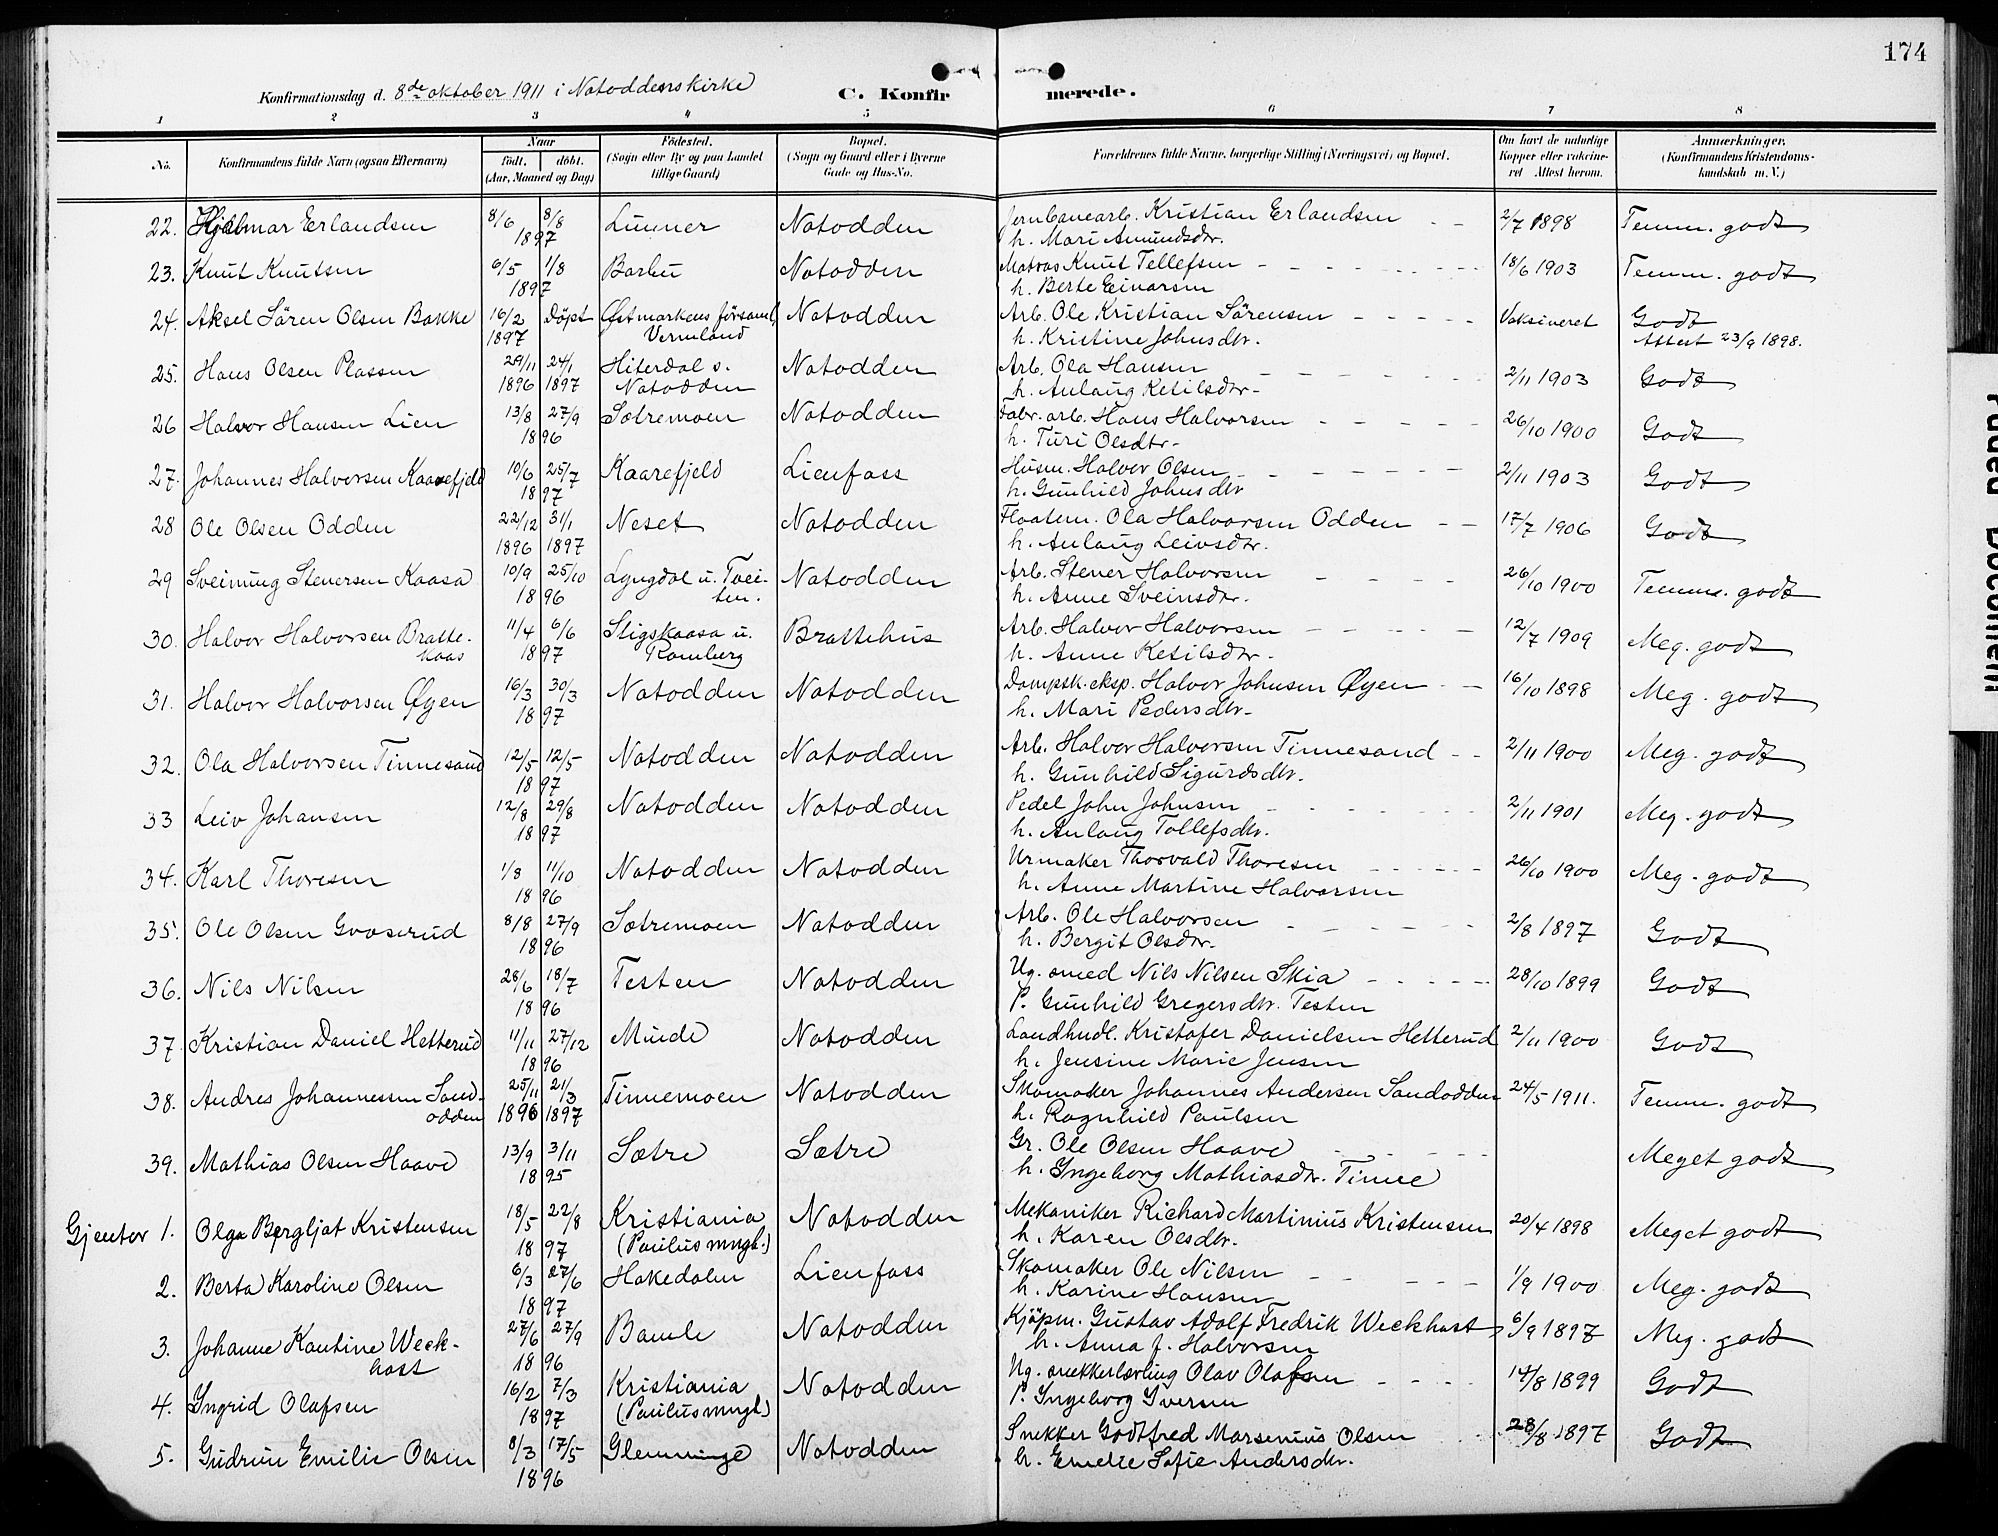 174
Konfirmationsdag d. 8de oktober 1911 i Notoddens kirke
C. Konfirmerede.
1 2 3 4 5 6 7 8
No. Konfirmandens fulde Navn (ogsaa Efternavn) Naar født. døbt. (Aar, Maaned og Dag) Fødested. (Sogn eller By og paa Landet tillige Gaard) Bopæl. (Sogn og Gaard eller i Byerne Gade og Hus-No. Forældrenes fulde Navne, borgerlige Stilling (Næringsvei) og Bopæl. Om havt de naturlige Kopper eller vaccineret Attest herom. Anmærkninger. (Konfirmandens Kristendomskundskab m. V.)
22. Hjalmar Erlandsen 8/6 8/8 1897 Lunner Notodden Jernbanearb. Kristian Erlandsen 2/7 1898 Temm. godt
h. Mari Amundsdtr.
23. Knut Knutsen 6/5 1/8 1897 Barbu Notodden Matros Knut Tellefsen 18/6 1903 Temm. godt
h. Berte Einarsen
24. Aksel Sören Olsen Bakke 16/2 1897 Döpt Østmarkens församl. Vermland Notodden Arb. Ole Kristian Sörensen Vaksineret Godt
h. Kristine Johnsdtr. Attest 23/9 1898.
25. Hans Olsen Plassen 29/11 1896 24/1 1897 Hiterdal s. Notodden Notodden Arb. Ola Hansen 2/11 1903 Godt
h. Anlaug Ketilsdtr
26 Halvor Hansen Lien 13/8 27/9 1896 Sætremoen Notodden Fabr. arb. Hans Halvorsen 26/10 1900 Godt
h. Turi Olsdtr
27. Johannes Halvorsen Kaarefjeld 10/6 25/7 1897 Kaarefjeld Lienfoss Husm. Halvor Olsen 2/11 1903 Godt
h. Gunhild Johnsdtr
28 Ole Olsen Odden 22/12 1896 31/1 1897 Neset Notodden Fløatem. Ola Halvorsen Odden 17/7 1906 Godt
h. Anlaug Leivsdtr.
29 Sveinung Stenersen Kaasa 10/9 25/10 1896 Lyngdal u. Tveiten. Notodden Arb. Stener Halvorsen 26/10 1900 Temm. godt
h. Anne Sveinsdtr.
30. Halvor Halvorsen Brattekaas 11/4 6/6 1897 Stigskaasa u. Romberg Brattehus Arb. Halvor Halvorsen 12/7 1909 Meg. godt
h. Anne Ketilsdtr
31. Halvor Halvorsen Øyen 16/3 30/3 1897 Notodden Notodden Dampsk. eksp. Halvor Johnsen Øyen 16/10 1898 Meg. godt
h. Mari Pedersdtr
32. Ola Halvorsen Tinnesand 12/5 12/5 1897 Notodden Notodden Arb. Halvor Halvorsen Tinnesand 2/11 1900 Meg. godt
h. Gunhild Sigurdsdtr.
33 Leiv Johansen 12/8 29/8 1897 Notodden Notodden Pedel John Johnsen 2/11 1901 Meg. godt
h. Anlaug Tollefsdtr.
34. Karl Thoresen 1/8 11/10 1896 Notodden Notodden Urmaker Thorvald Thoresen 26/10 1900 Meg. godt
h. Anne Martine Halvorsen
35. Ole Olsen Graaserud 8/8 27/9 1896 Sætremoen Notodden Arb. Ole Halvorsen 2/8 1897 Godt
h. Bergit Olsdtr.
36. Nils Nilsen 28/6 18/7 1896 Testen Notodden Ug. smed Nils Nilsen Skia 28/10 1899 Godt
P. Gunhild Gregersdtr. Testen
37. Kristian Daniel Hetterud 11/11 27/12 1896 Minde Notodden Landhndl. Kristofer Danielsen Hetterud 2/11 1900 Godt
h. Jensine Marie Jensen
38. Andres Johannessen Sandodden 25/11 1896 21/3 1897 Tinnemoen Notodden Skomaker Johannes Andersen Sandodden 24/5 1911. Temm. godt
h. Ragnhild Paulsen
39. Mathias Olsen Haave 13/9 3/11 1895 Sætre Sætre Gr. Ole Olsen Haave Meget godt
h. Ingeborg Mathiasdtr. Tinne
Gjentor 1. Olga Bergljot Kristensen 18/5 22/8 1897 Kristiania (Paulus mngh.) Notodden Mekaniker Richard Martinius Kristensen 20/4 1898 Meget godt
h. Karen Olsdtr.
2. Berta Karoline Olsen 6/3 27/6 1897 Hakedalen Lienfoss Skomaker Ole Nilsen 1/9 1900 Meg. godt
h. Karine Hansen
3. Johanne Kantine Weckhost 27/6 27/9 1896 Bamle Notodden Kjöpm. Gustav Adolf Fredrik Weckhost 6/9 1897 Meg. godt
h. Anna f. Halvorsen
4. Ingrid Olafsen 16/2 7/3 1897 Kristiania (Paulus mngh.) Notodden Ug. snekkerlærling Olav Olafsen 14/8 1899 Godt
P. Ingeborg Iversen
5. Gudrun Emilie Olsen 8/3 17/5 1896 Glemminge Notodden Snekker Godtfred Marsenius Olsen 28/8 1897 Godt
h. Emelie Sofie Andersdtr.